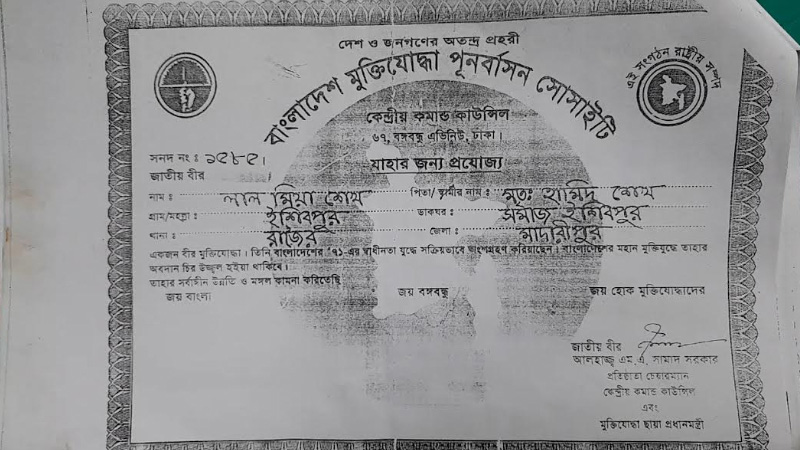 দেশ ও জনগণের অতন্দ্র প্রহরী
বাংলাদেশ মুক্তিযোদ্ধা পূনর্বাসন সোসাইটি
এই সংগঠন রাষ্ট্রীয় সম্পদ
কেন্দ্রীয় কমান্ড কাউন্সিল
৬৭, বঙ্গবন্ধু এভিনিউ, ঢাকা।
সনদ নং ঃ ১৫৮৫। যাহার জন্য প্রযোজ্য
জাতীয় বীর
নাম ঃ লাল মিয়া শেখ পিতা/ স্বামীর নাম ঃ মৃতঃ হামিদ শেখ
গ্রাম/মহল্লা ঃ ইশিবপুর ডাকঘর ঃ সমাজ ইশিবপুর
থানা ঃ রাজৈর জেলা ঃ মাদারীপুর
একজন বীর মুক্তিযোদ্ধা। তিনি বাংলাদেশের '৭১-এর স্বাধীনতা যুদ্ধে সক্রিয়ভাবে অংশগ্রহণ করিয়াছেন। বাংলাদেশের মহান মুক্তিযুদ্ধে তাহার
অবদান চির উজ্জ্বল হইয়া থাকিবে।
তাহার সর্বাঙ্গীন উন্নতি ও মঙ্গল কামনা করিতেছি
জয় বাংলা জয় বঙ্গবন্ধু জয় হোক মুক্তিযোদ্ধাদের
জাতীয় বীর
আলহাজ্ব এম.এ. সামাদ সরকার
প্রতিষ্ঠাতা চেয়ারম্যান
কেন্দ্রীয় কমান্ড কাউন্সিল
এবং
মুক্তিযোদ্ধা ছায়া প্রধানমন্ত্রী